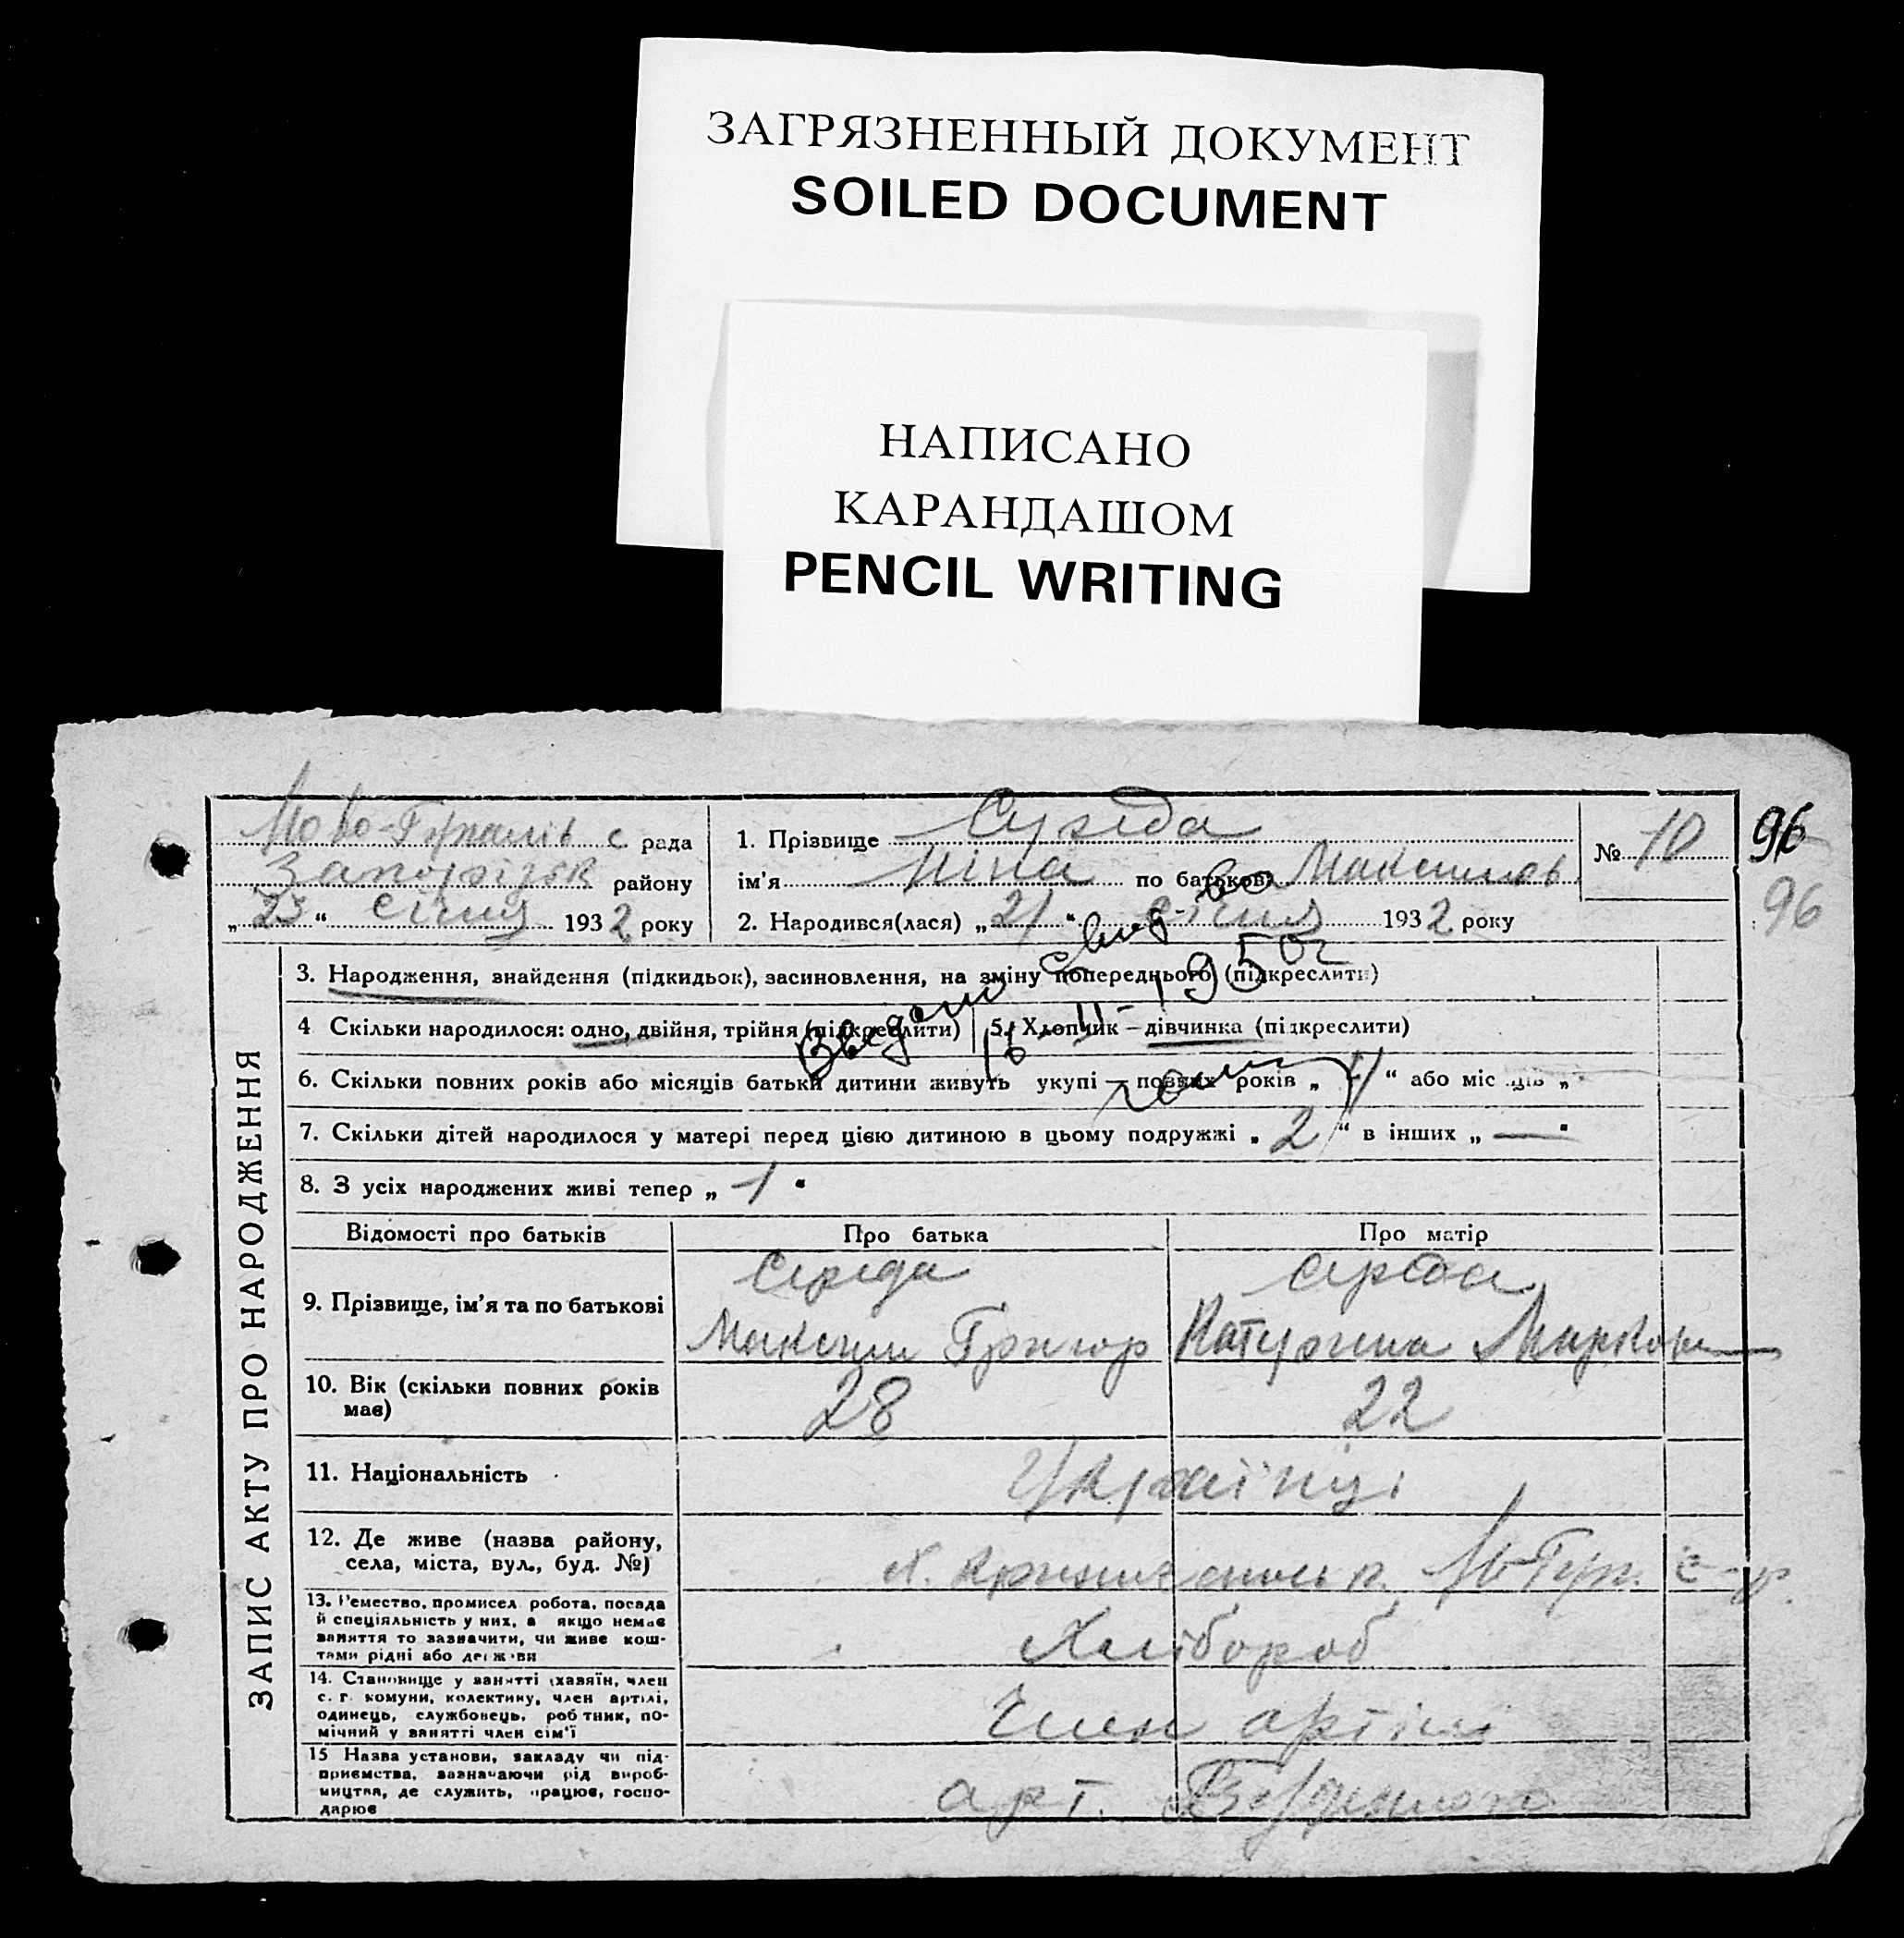 ЗАГРЯЗНЕННЫЙ ДОКУМЕНТ
SOILED DOCUMENT
НАПИСАНО
КАРАНДАШОМ
PENCIL WRITING
с рада
Запорізьк району
„23“ січня 1932 року
1. Прізвище Середа
ім'я Ніна по батькові Максимов.
2. Народився(лася) „21“ січня 1932 року
№ 10
96
96
ЗАПИС АКТУ ПРО НАРОДЖЕННЯ
3. Народження, знайдення (підкидьок), засиновлення, на зміну попереднього (підкреслити)
4 Скільки народилося: одно, двійня, трійня (підкреслити)
5. Хлопчик – дівчинка (підкреслити)
6. Скільки повних років або місяців батьки дитини живуть укупі – повних років „4“ або місяців „
7. Скільки дітей народилося у матері перед цією дитиною в цьому подружжі „2“ в інших „—“
8. З усіх народжених живі тепер „1“
Видано свид-во
16-II-1950г
Відомості про батьків
Про батька
Про матір
9. Прізвище, ім'я та по батькові
Середа
Максим Григор
Середа
Катерина Марков
10. Вік (скільки повних років має)
28
22
11. Національність
Українці
12. Де живе (назва району,
села, міста, вул., буд. №)
с-р.
13. Ремество, промисел, робота, посада
й спеціяльність у них, а якщо немає
заняття то зазначити, чи живе кош-
тами рідні або держави
Хлібороб
14. Становище у занятті (хазяїн, член
с. г. комуни, колективу, член артілі,
одинець, службовець, робітник, по-
мічний у занятті член сім'ї
Член артілі
15 Назва установи, закладу чи під-
приємства, зазначаючи рід вироб-
ництва, де служить, працює, госпо-
дарює
арт.